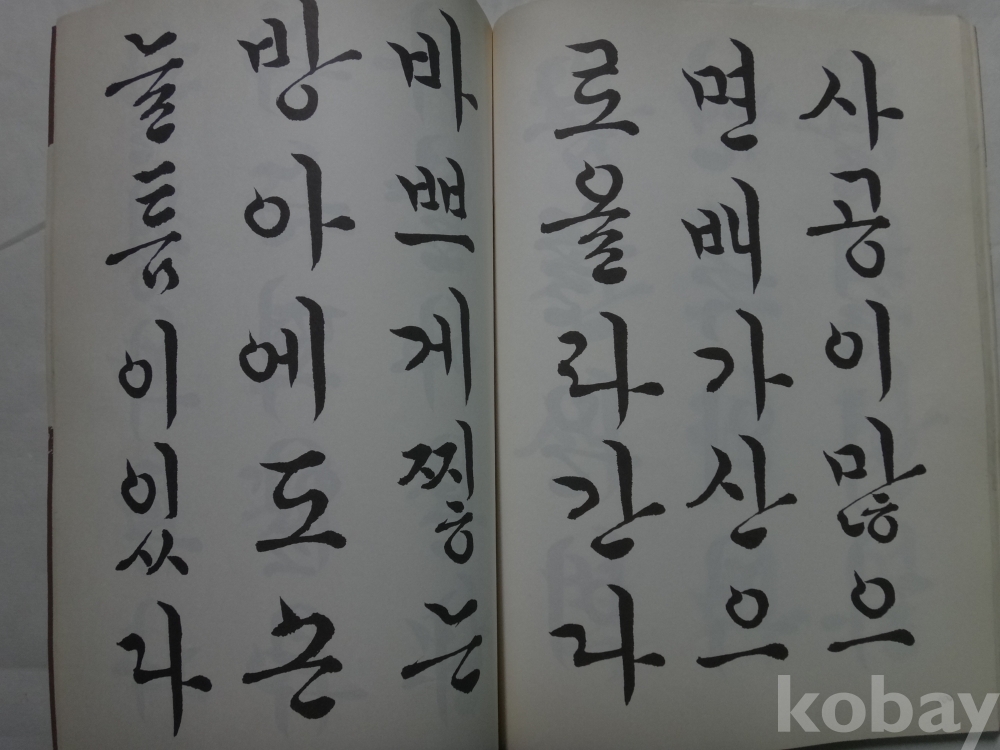 사공이많으
면배가산으
로올라간다
바쁘게찧는
방아에도손
놀틈이있다
kobay